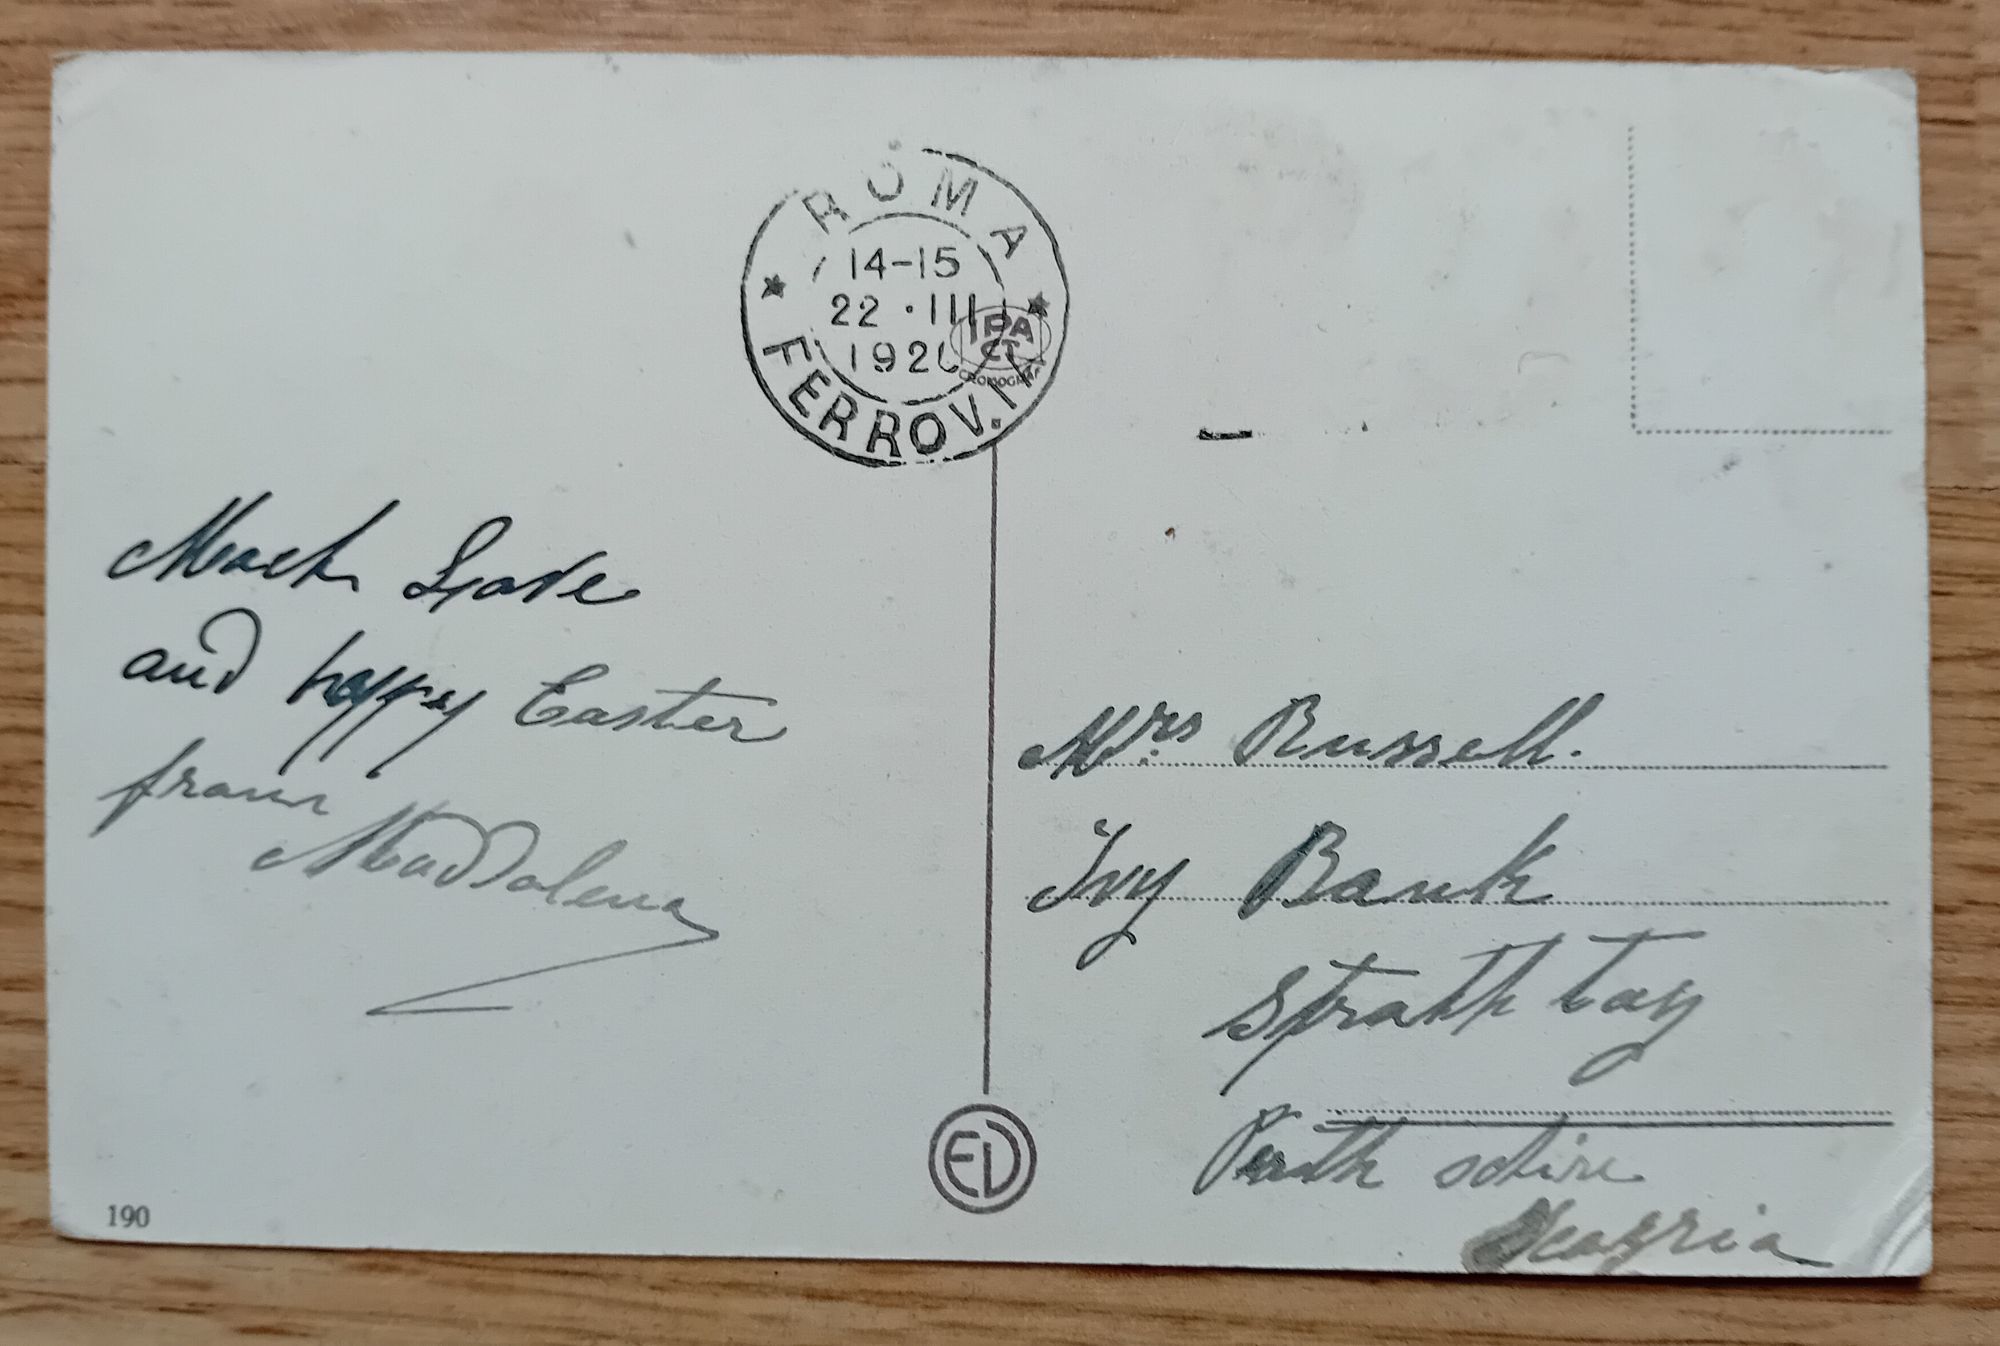 ROMA
14-15
22 · III
192
FERROVIA
IPA
CT
CROMOGRAF
Much Love
and happy Easter
from
Maddalena
Mrs Russell.
Ivy Bank
Strath tay
Perth schire
ED
190